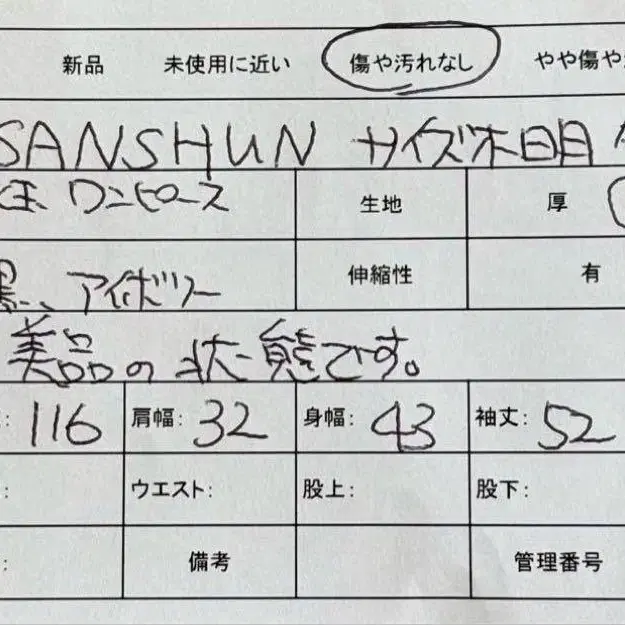 新品 未使用に近い 傷や汚れなし やや傷や
SANSHUN サイズ不明
ワンピース 生地 厚
黒、アイボリー 伸縮性 有
美品の状態です。
: 116 肩幅: 32 身幅: 43 袖丈: 52
: ウエスト: 股上: 股下:
: 備考 管理番号